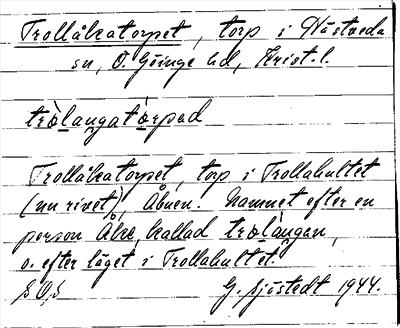 Trollåkatorpet, torp i Nåstveda
sn, Ö. Göinge hd, Krist. l.
trolangatorped
Trollåkatorpet, torp i Trollahultet
(nu rivet), Åbuen. Namnet efter en
person Åke, kallad trolången,
o. efter läget i Trollahultet.
G. Sjöstedt 1944.